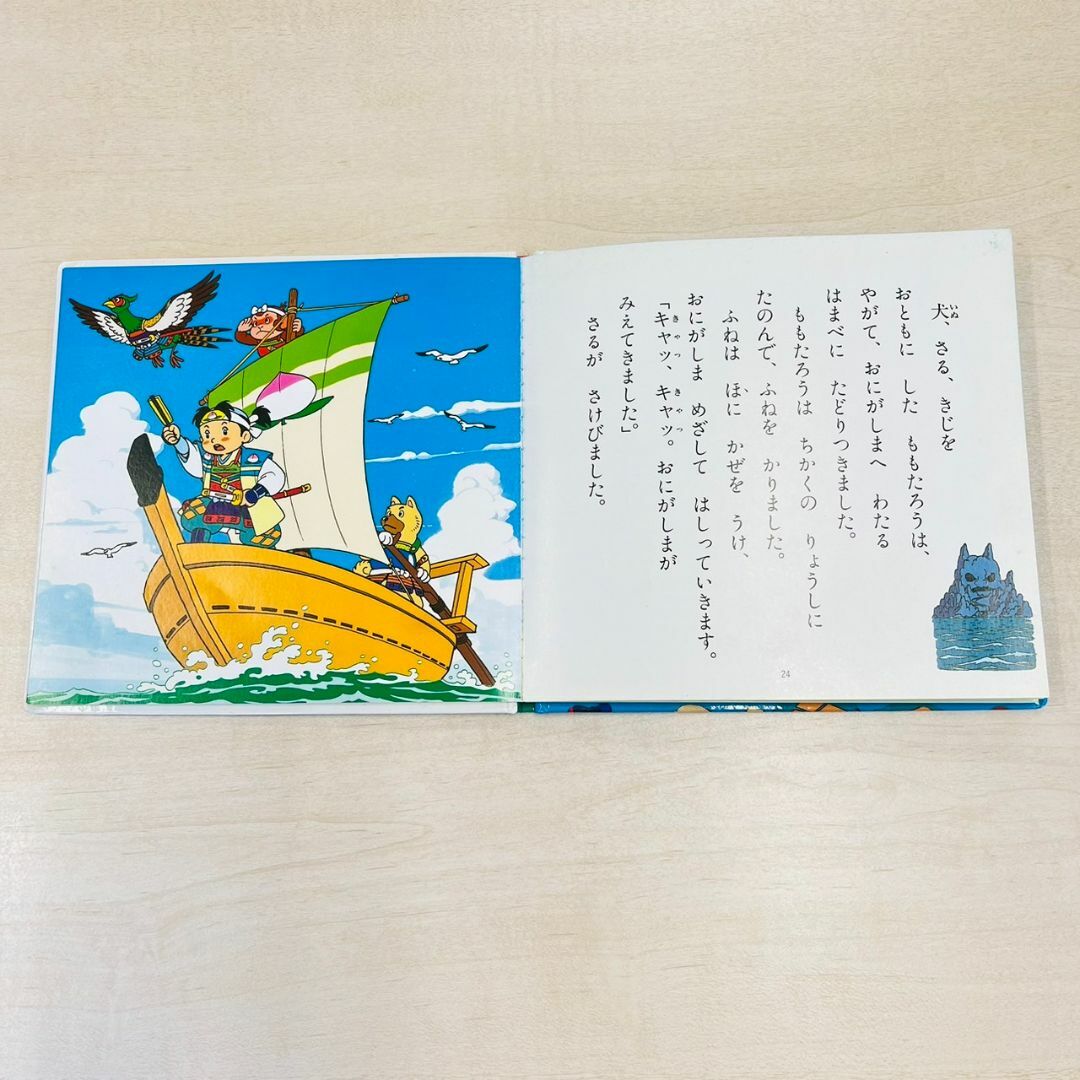 犬、さる、きじを
いぬ
おともに した ももたろうは、
やがて、おにがしまへ わたる
はまべに たどりつきました。
ももたろうは ちかくの りょうしに
たのんで、ふねを かりました。
ふねは ほに かぜを うけ、
おにがしま めざして はしっていきます。
「キャッ、キャッ。おにがしまが
きゃっ きゃっ
みえてきました。」
さるが さけびました。
24